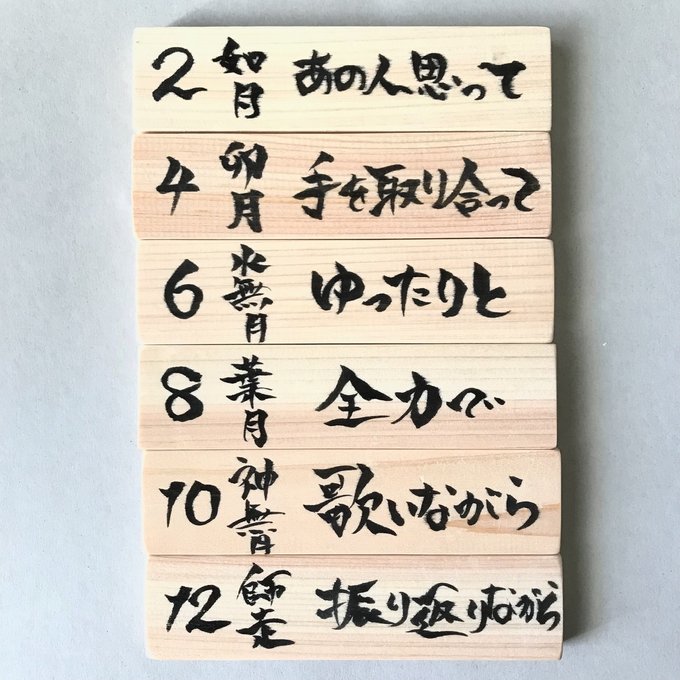 2 如月 あの人思って
4 卯月 手を取り合って
6 水無月 ゆったりと
8 葉月 全力で
10 神無月 歌いながら
12 師走 振り返りながら